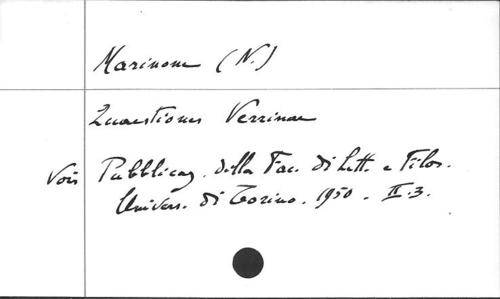 Marinone (N.)
Quaestiones Verrinae
Voir Pubblicaz. della Fac. di Lett. e Filos.
Univers. di Torino. 1950. II.3.